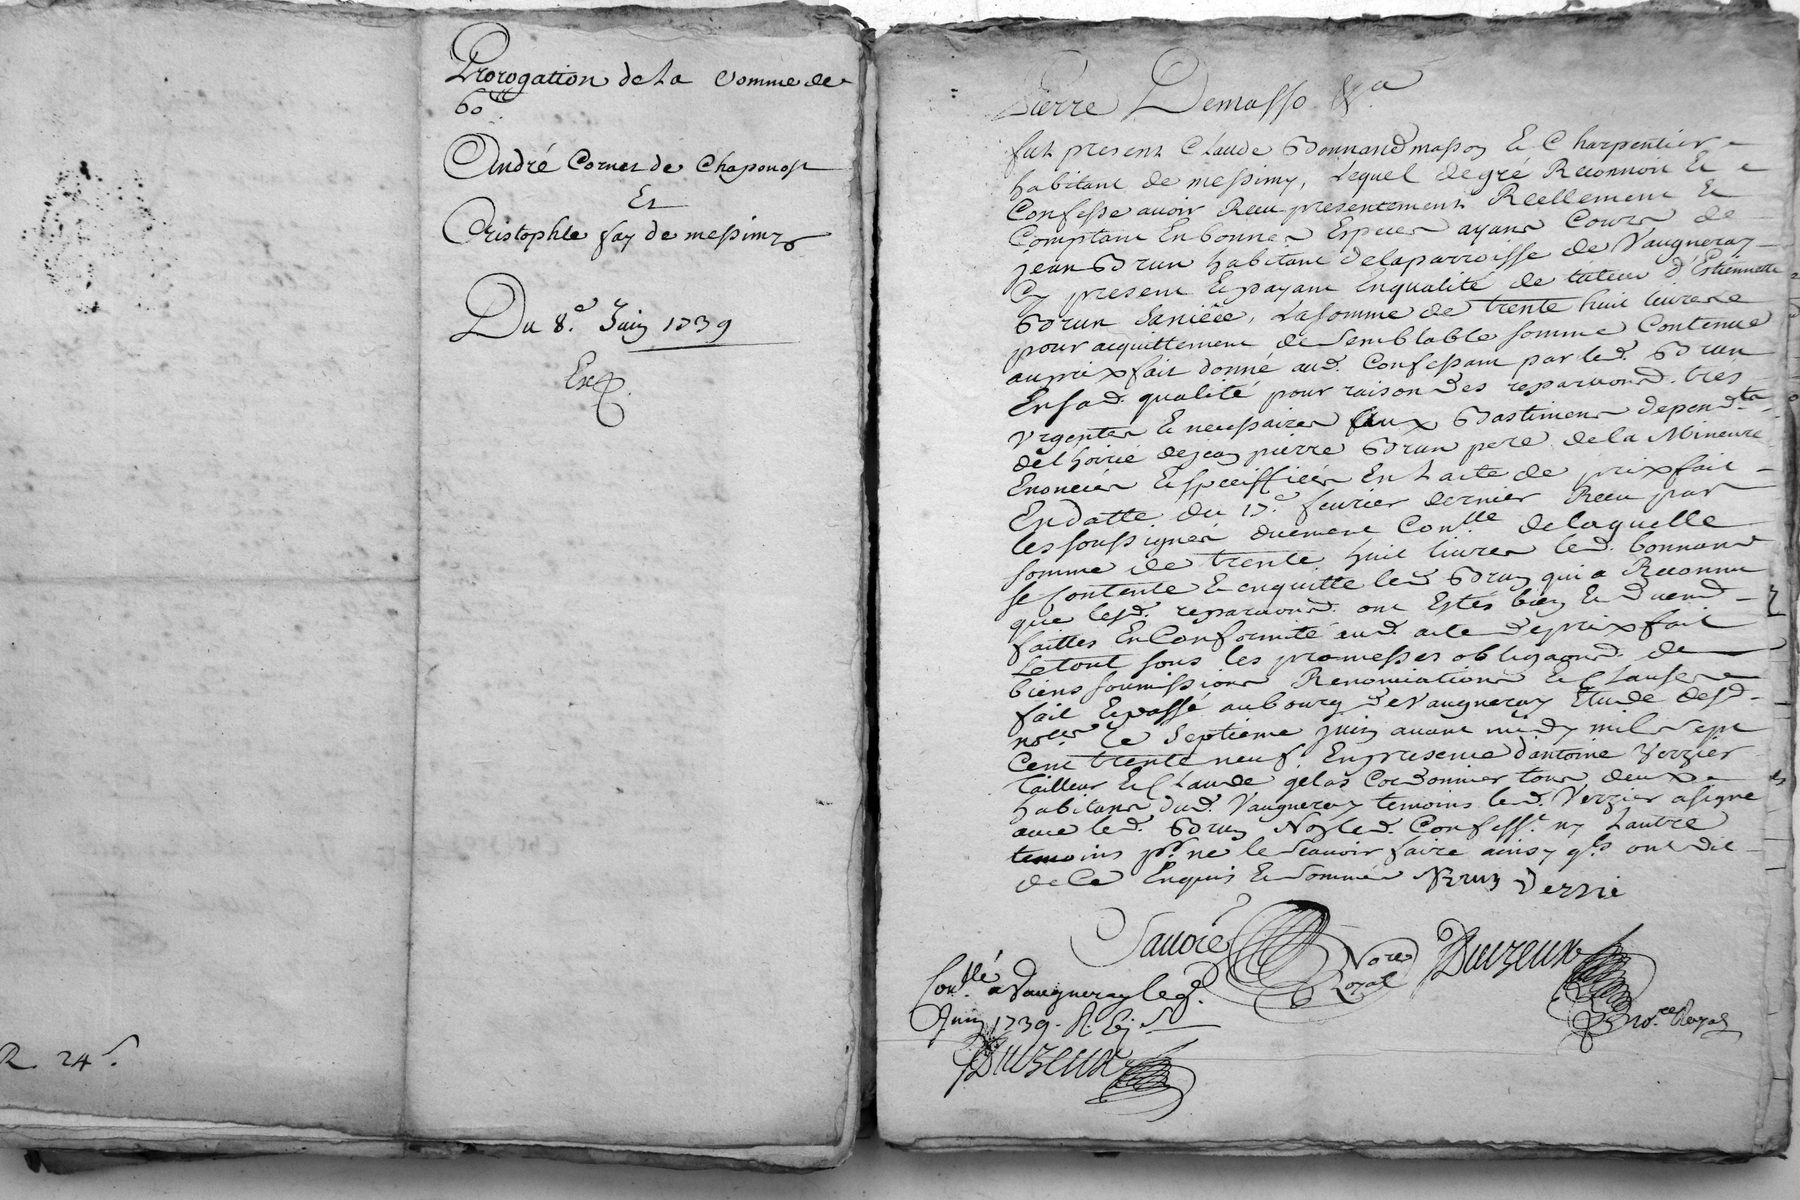 Prorogation de La somme de
60ᵗᵗ
André Cornet de Chaponost
Et
Cristophle fay de messimy
Du 8.e Juin 1739
Exp.
R 24 s.
Pierre Demasso &a
fut present Claude Bonnand masson & Charpentier
habitant de messimy, Lequel de gré Reconnoit Et
Confesse avoir Receu presentement Reellement Et
Comptant En bonnes Especes ayant Cours de
jean Brun habitant de la parroisse de Vaugneray
Cy present Et payant En qualité de tuteur d'Estiennette
Brun sa niéce, La somme de trente huit livres
pour acquittement de semblable somme Contenue
au prix fait donné aud. Confessant par led. Brun
En sad. qualité pour raison des reparaons. tres
Urgentes Et necessaires aux Bastiments depend.ts
de Lhoirie de jean pierre Brun pere de la Mineure
Enoncées Et speciffiées En Lacte de prix fait
En datte du 17.e fevrier dernier Receu par
les soussignés duement Con.llé de laquelle
somme de trente huit livres led. bonnand
se Contente & en quitte led. Brun qui a Reconnu
que lesd. reparaons. ont Estés bien Et duem.t
faittes En Conformité aud. acte de prix fait
Le tout sous les promesses obligaons. de
biens soumissions Renonciations Et Clauses
fait Et passé au bourg de Vaugneray Etude desd.
no.res Le septiéme juin avant midy mil sept
Cent trente neuf En presence d'antoine Verzier
tailleur Et Claude gelas Cordonnier tous deux
habitans dud. Vaugneray temoins led. Verzier a signé
avec led. Brun Non led. Confess.t ny Lautre
temoins p.r ne le scavoir faire ainsy q.ls ont dit
de Ce Enquis Et sommés Brun Verzié
No.re Royal
Duzeux
no.re Royal
Con.llé a Vaugneray le 8.e
Juin 1739. R.
Duzeux